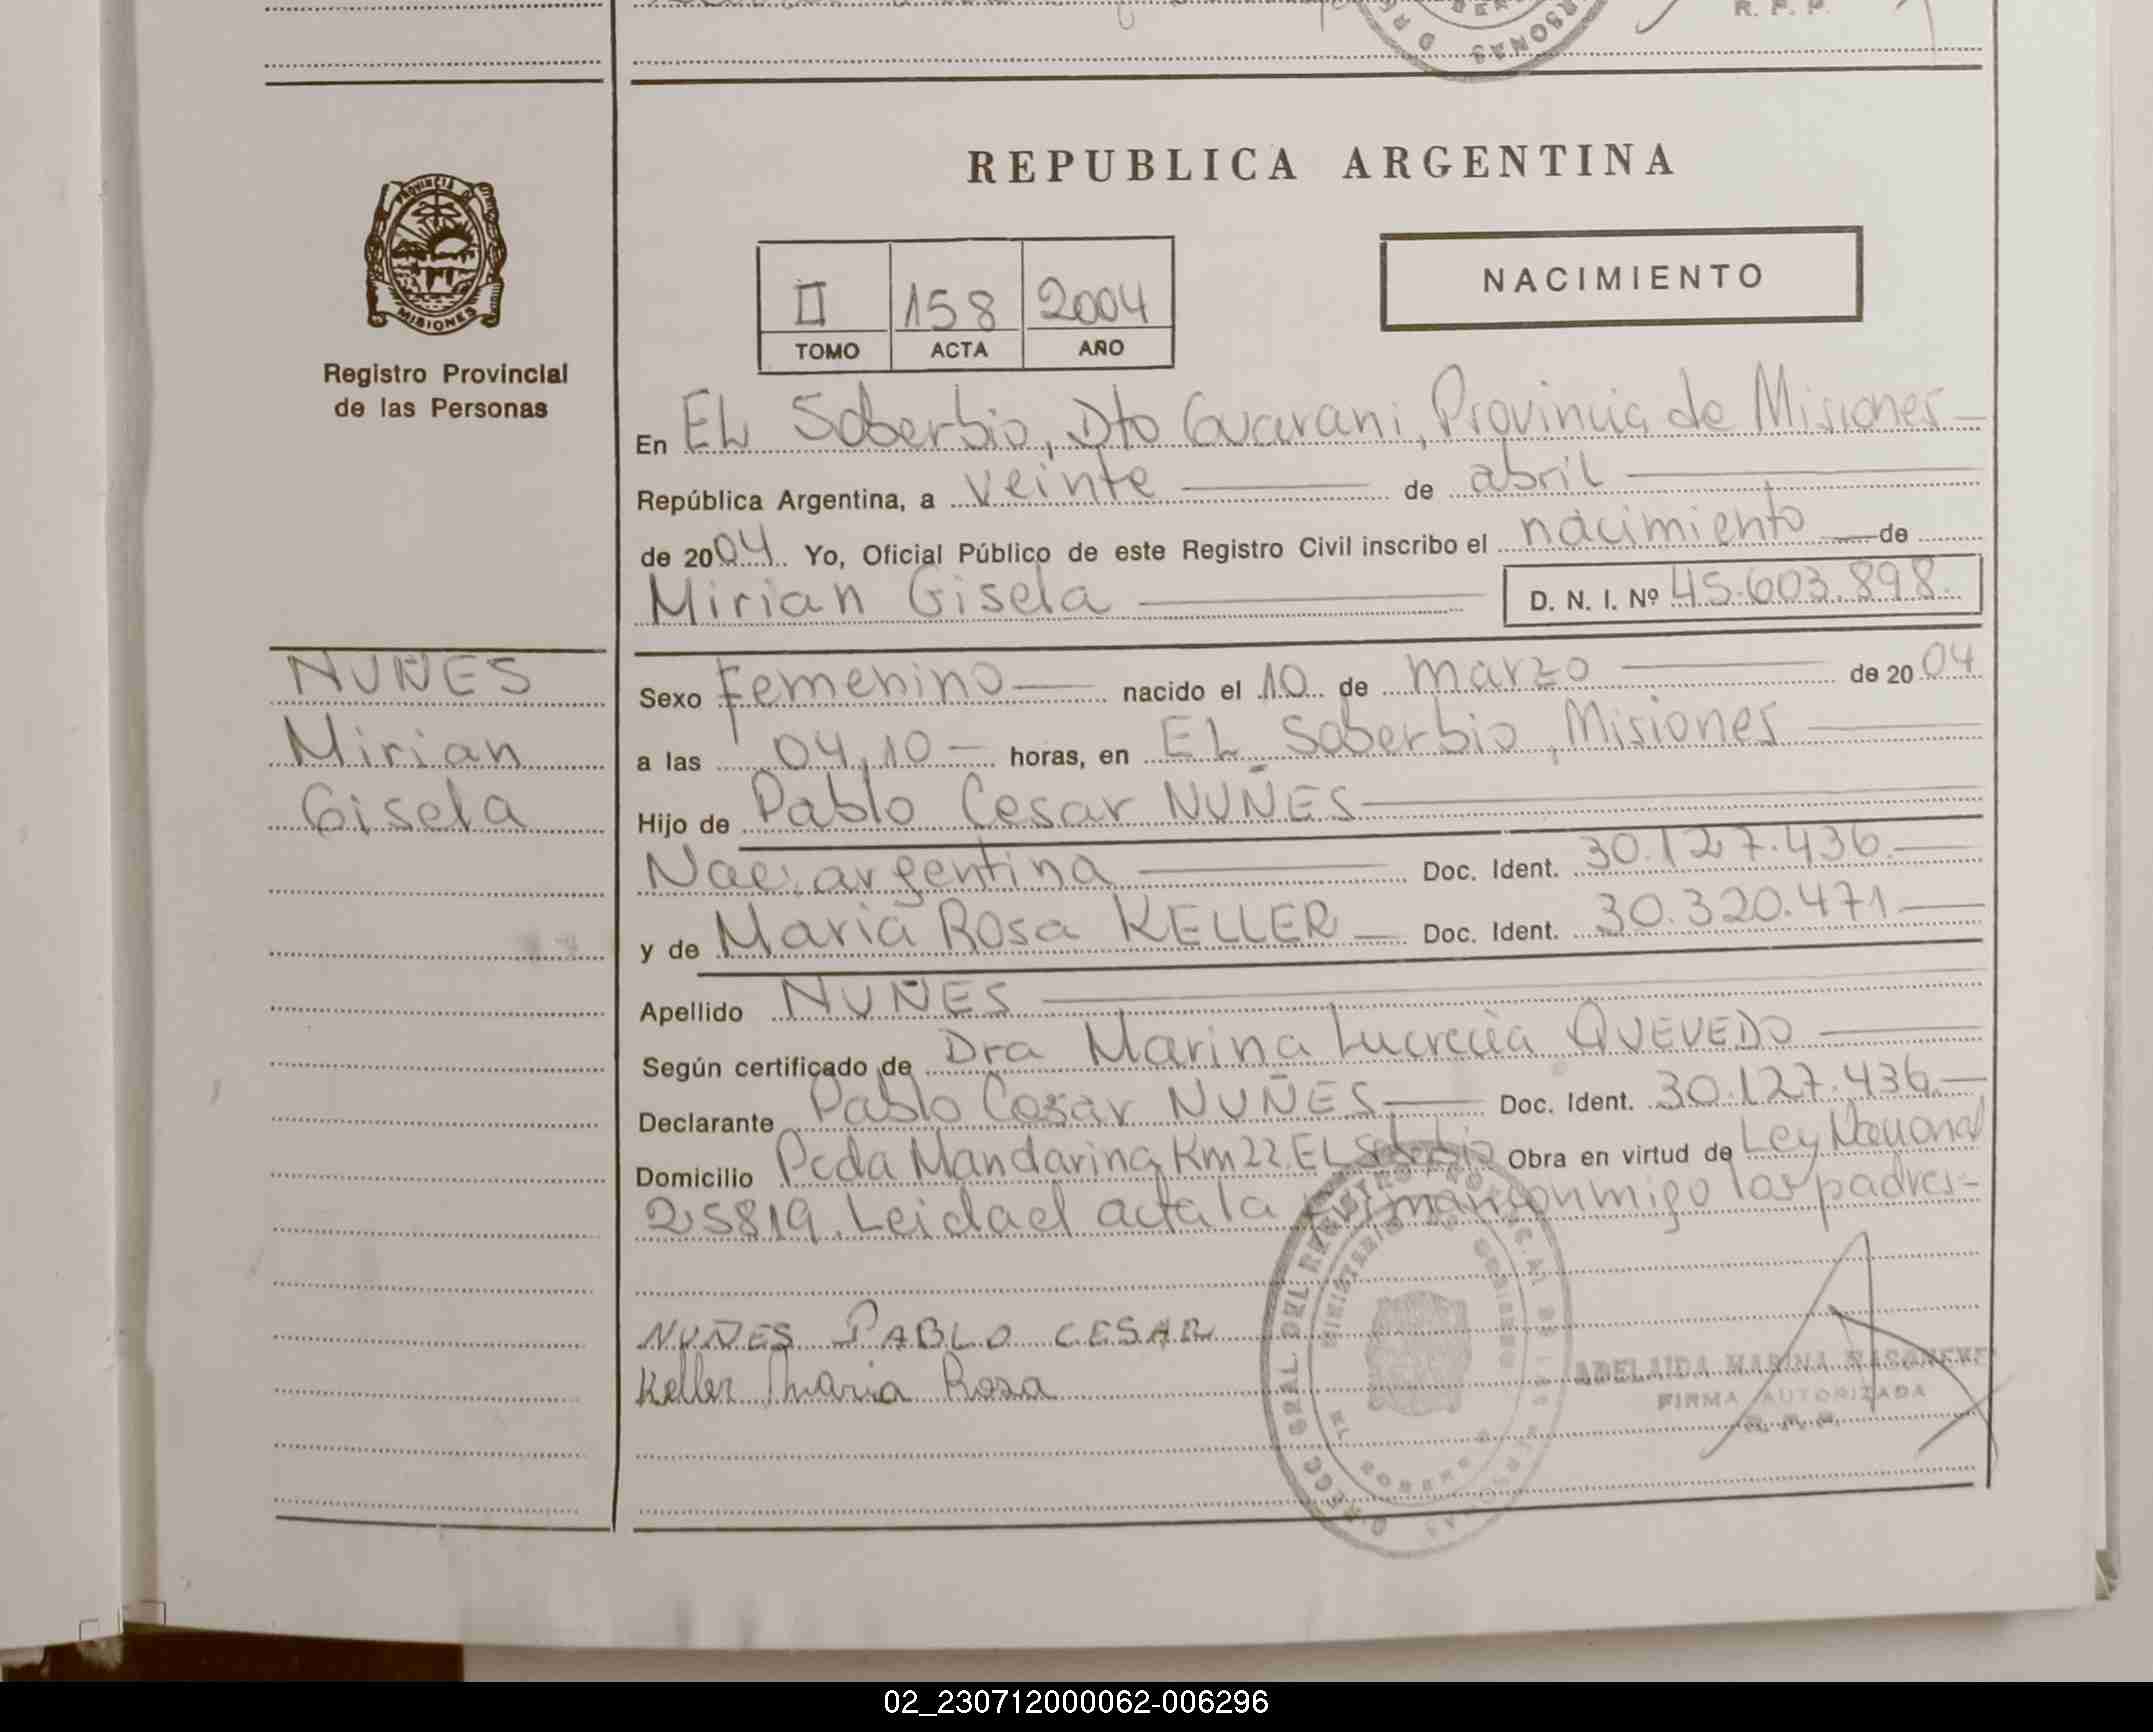 R. P. P.
REPUBLICA ARGENTINA
PROVINCIA DE
MISIONES
Registro Provincial
de las Personas
II 158 2004
TOMO ACTA AÑO
NACIMIENTO
En EL Soberbio, Dto Guarani, Provincia de Misiones
República Argentina, a veinte de abril
de 2004. Yo, Oficial Público de este Registro Civil inscribo el nacimiento de
Mirian Gisela D. N. I. Nº 45.603.898.
NUÑES
Mirian
Gisela
Sexo Femenino nacido el 10 de marzo de 2004
a las 04,10 horas, en EL Soberbio, Misiones
Hijo de Pablo Cesar NUÑES
Nac. argentina Doc. Ident. 30.127.436.
y de Maria Rosa KELLER Doc. Ident. 30.320.471
Apellido NUÑES
Según certificado de Dra Marina Lucrecia QUEVEDO
Declarante Pablo Cesar NUÑES Doc. Ident. 30.127.436.
Domicilio Pcda Mandarina Km 22. EL Soberbio Obra en virtud de Ley Nacional
25819. Leida el acta la firman conmigo los padres
NUÑES PABLO CESAR
Keller Maria Rosa
ADELAIDA MARINA
FIRMA AUTORIZADA
R. P. P.
02_230712000062-006296